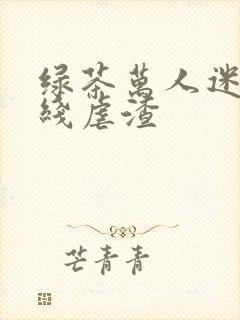 绿茶萬人迷
綫虐渣
芒青青